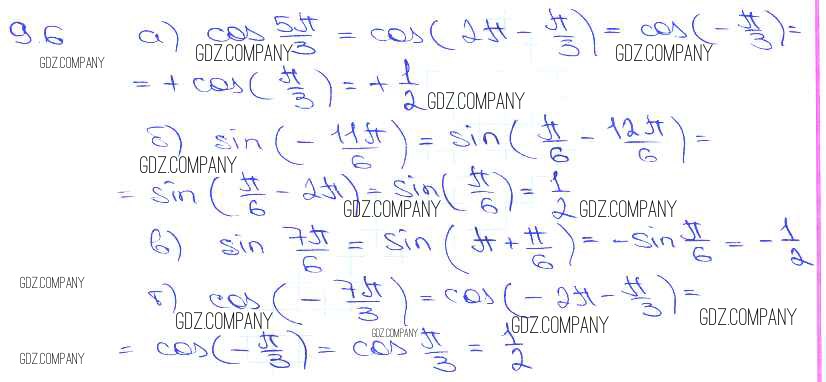 9.6 а) cos 5π/3 = cos(2π − π/3) = cos(− π/3) =
GDZ.COMPANY GDZ.COMPANY GDZ.COMPANY
= + cos(π/3) = + 1/2 GDZ.COMPANY
б) sin(− 11π/6) = sin(π/6 − 12π/6) =
GDZ.COMPANY
= sin(π/6 − 2π) = sin(π/6) = 1/2
GDZ.COMPANY GDZ.COMPANY
в) sin 7π/6 = sin(π + π/6) = − sin π/6 = − 1/2
GDZ.COMPANY
г) cos(− 7π/3) = cos(− 2π − π/3) =
GDZ.COMPANY GDZ.COMPANY GDZ.COMPANY
GDZ.COMPANY
= cos(− π/3) = cos π/3 = 1/2
GDZ.COMPANY